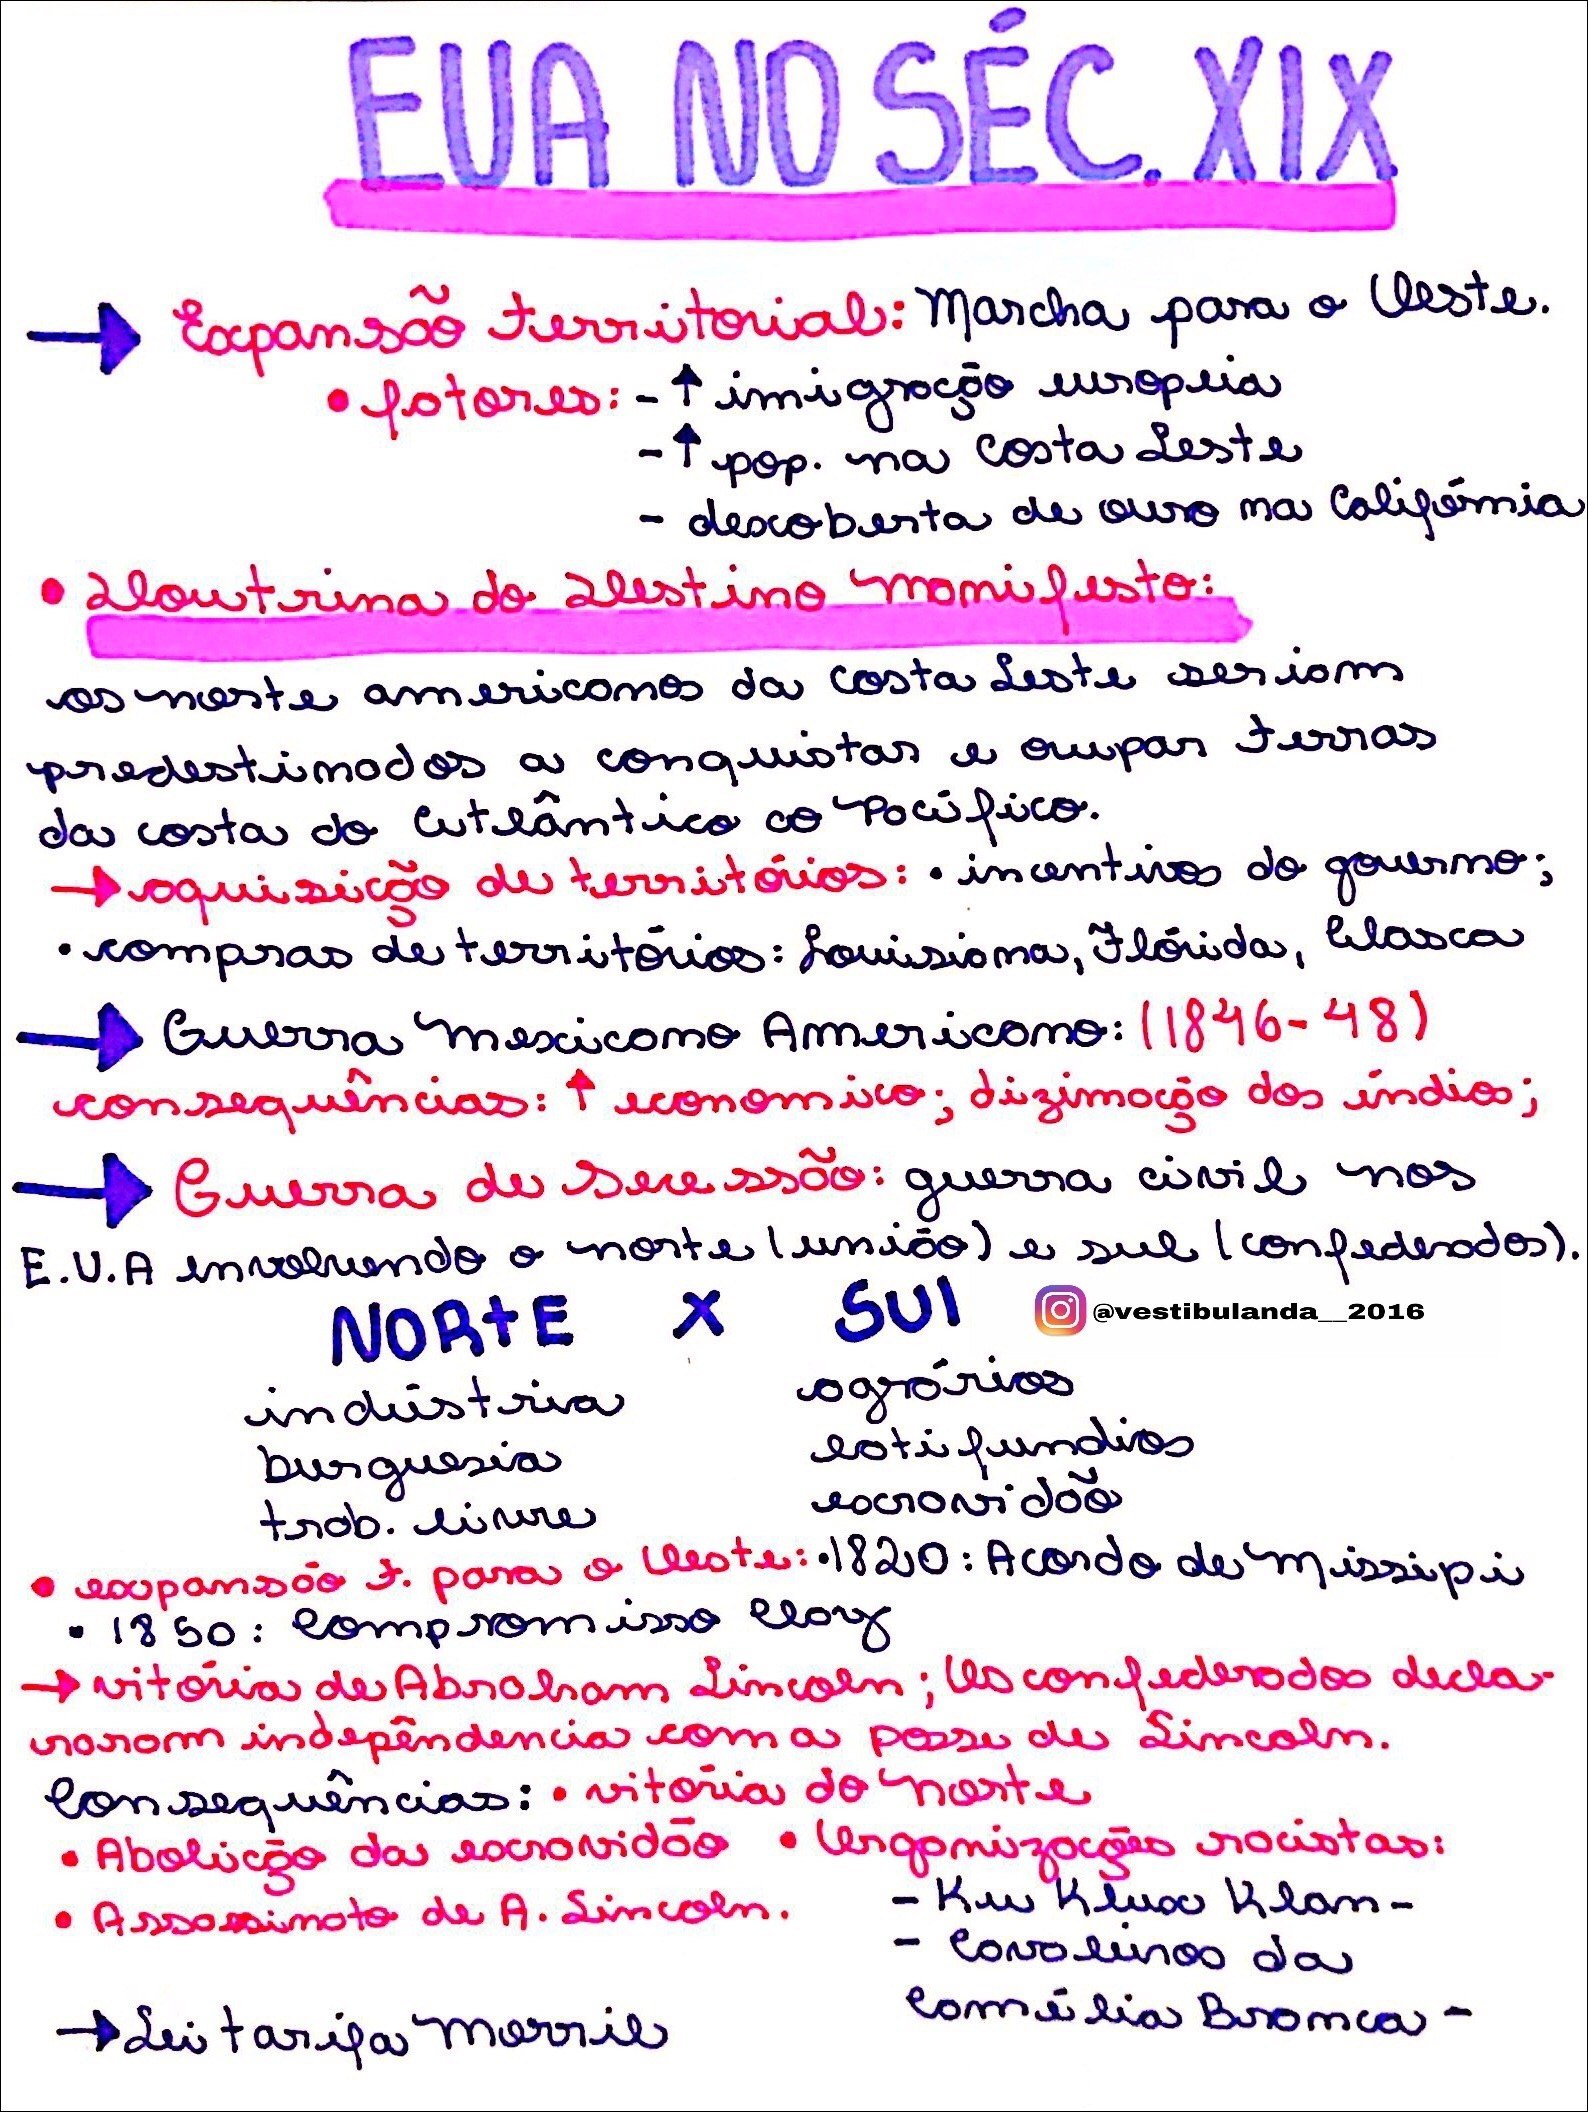 EUA NO SÉC. XIX
Expansão territorial: Marcha para o Oeste.
• fatores: - ↑ imigração europeia
- ↑ pop. na Costa Leste
- descoberta de ouro na Califórnia
• Doutrina do Destino Manifesto:
os norte americanos da costa Leste seriam
predestinados a conquistar e ocupar terras
da costa do Atlântico ao Pacífico.
→ aquisição de territórios: • incentivos do governo;
• compras de territórios: Louisiana, Flórida, Alasca
→ Guerra Mexicano Americano: (1846-48)
consequências: ↑ economico; dizimação dos índios;
→ Guerra de Secessão: guerra civil nos
E.U.A envolvendo o norte (união) e sul (confederados).
NORTE X SUl @vestibulanda__2016
indústria agrários
burguesia latifundios
trab. livre escravidão
• expansão t. para o Oeste: • 1820: Acordo de Missipi
• 1850: Compromisso Clay
→ vitória de Abraham Lincoln; Os confederados decla-
raram indepêndencia com a posse de Lincoln.
Consequências: • vitória do Norte
• Abolição da escravidão • Organizações racistas:
• Assassinato de A. Lincoln. - Ku Klux Klan -
- Cavaleiros da
Camélia Branca -
→ Lei tarifa Morril